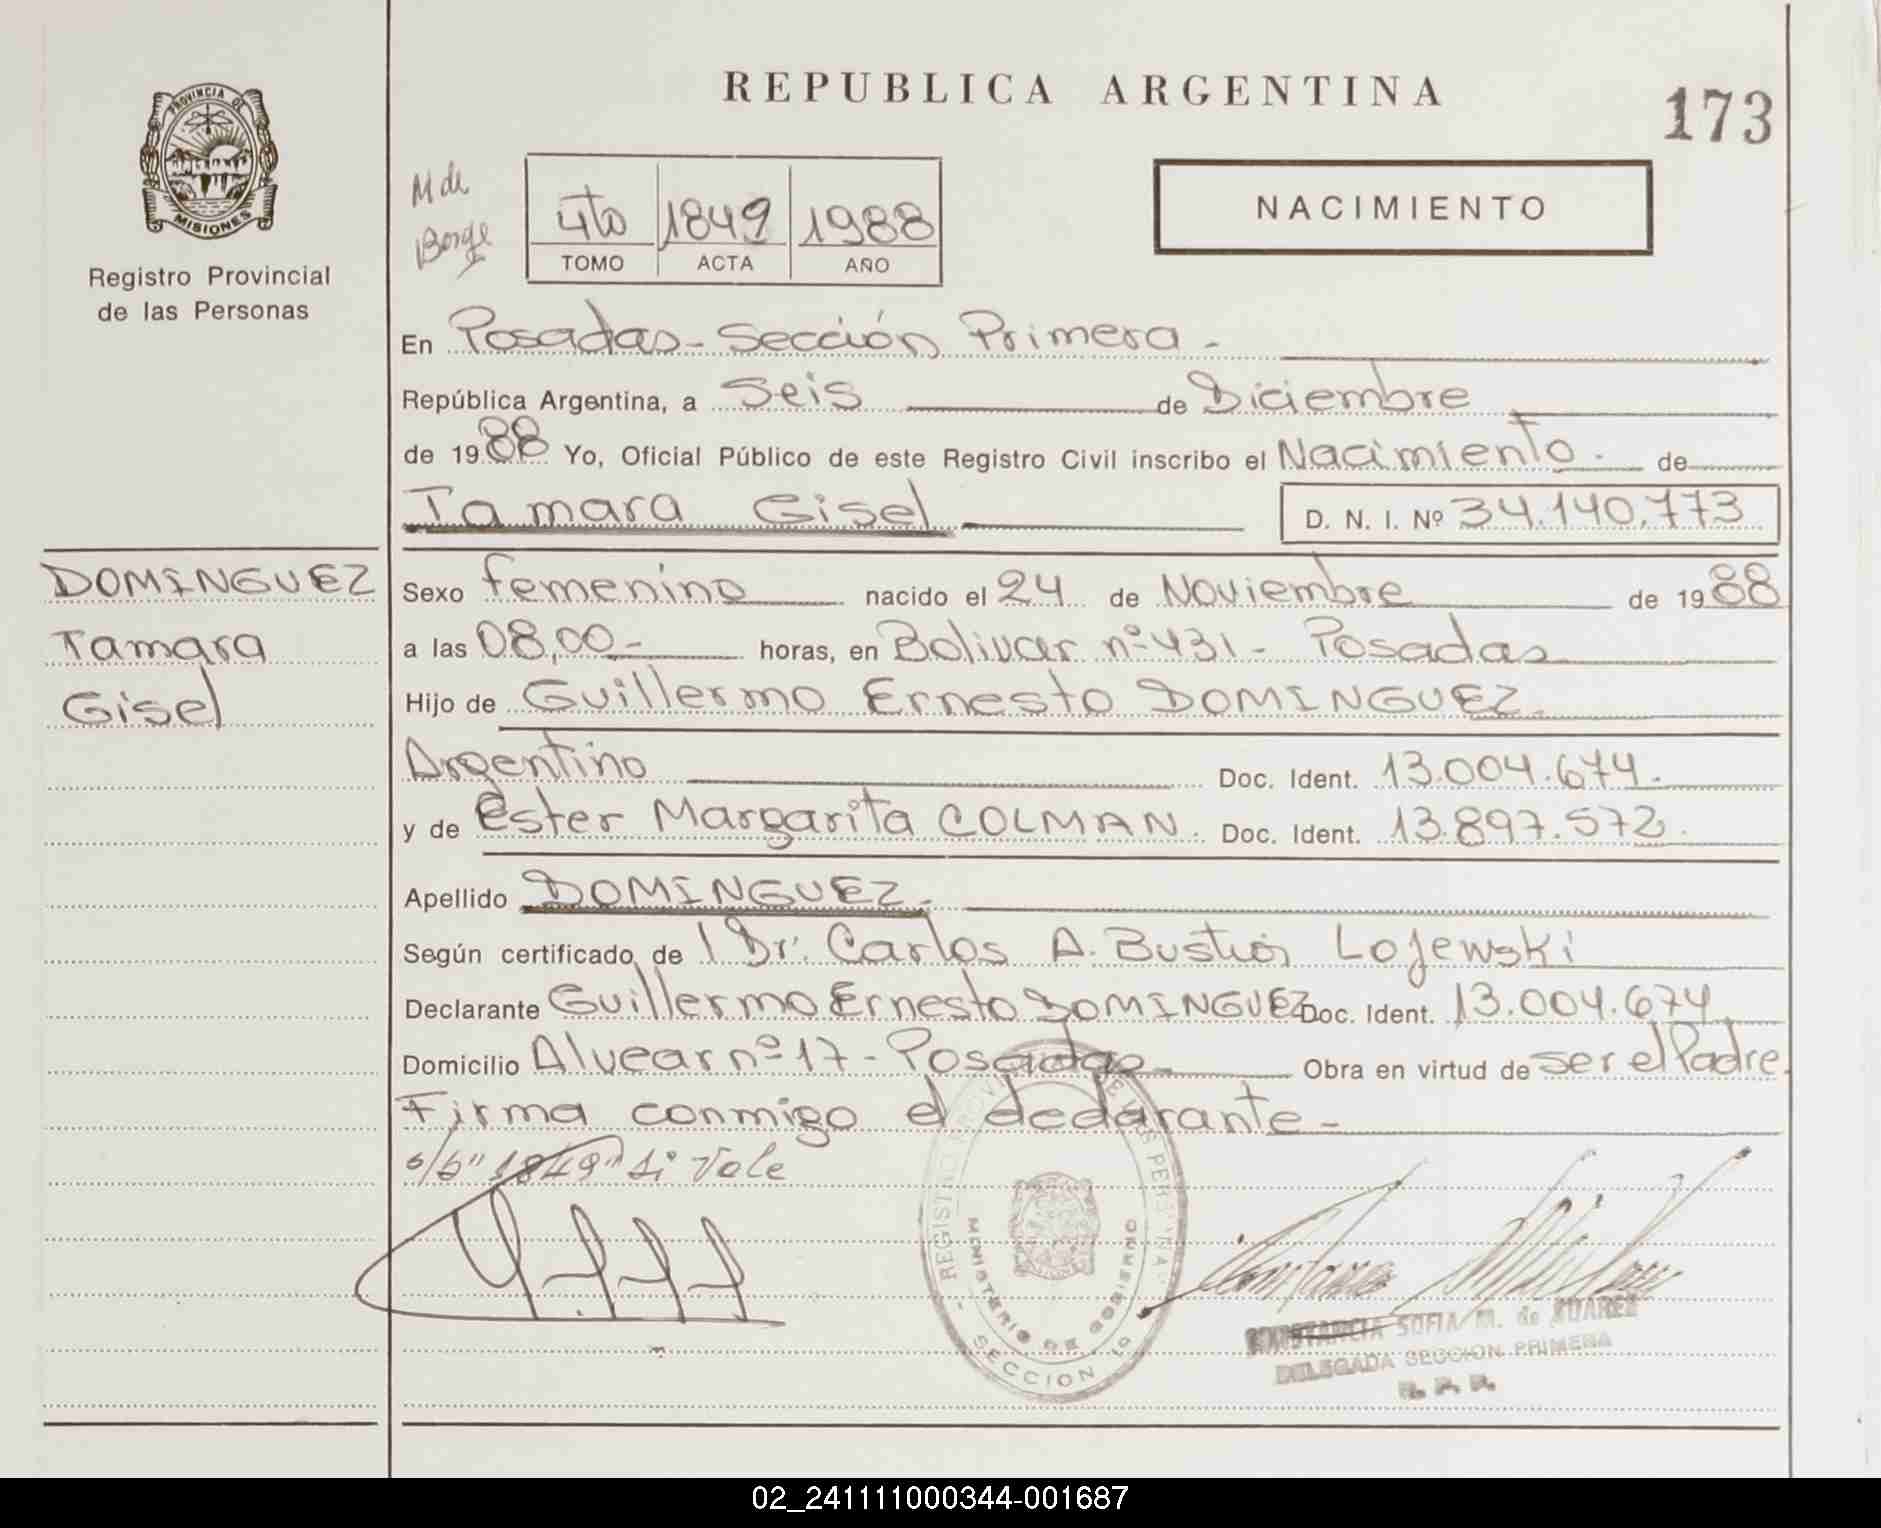 REPUBLICA ARGENTINA
173
PROVINCIA DE
MISIONES
Registro Provincial
de las Personas
M de
Borge
4to 1849 1988
TOMO ACTA AÑO
NACIMIENTO
En Posadas - Sección Primera -
República Argentina, a Seis de Diciembre
de 1988 Yo, Oficial Público de este Registro Civil inscribo el Nacimiento. de
Tamara Gisel
D. N. I. Nº 34.140.773
DOMINGUEZ
Tamara
Gisel
Sexo femenino nacido el 24 de Noviembre de 1988
a las 08,00- horas, en Bolivar nº 431 - Posadas
Hijo de Guillermo Ernesto DOMINGUEZ.
Argentino Doc. Ident. 13.004.674.
y de Ester Margarita COLMAN. Doc. Ident. 13.897.572.
Apellido DOMINGUEZ.-
Según certificado de l Dr. Carlos A. Lojewski
Declarante Guillermo Ernesto DOMINGUEZ Doc. Ident. 13.004.674
Domicilio Alvear nº 17 - Posadas - Obra en virtud de ser el Padre.
Firma conmigo el declarante -
s/b "1849" si Vale
MINISTERIO DE GOBIERNO
SECCION 1º
CONSTANCIA SOFIA M. de SUAREZ
DELEGADA SECCION PRIMERA
R. P. P.
02_241111000344-001687